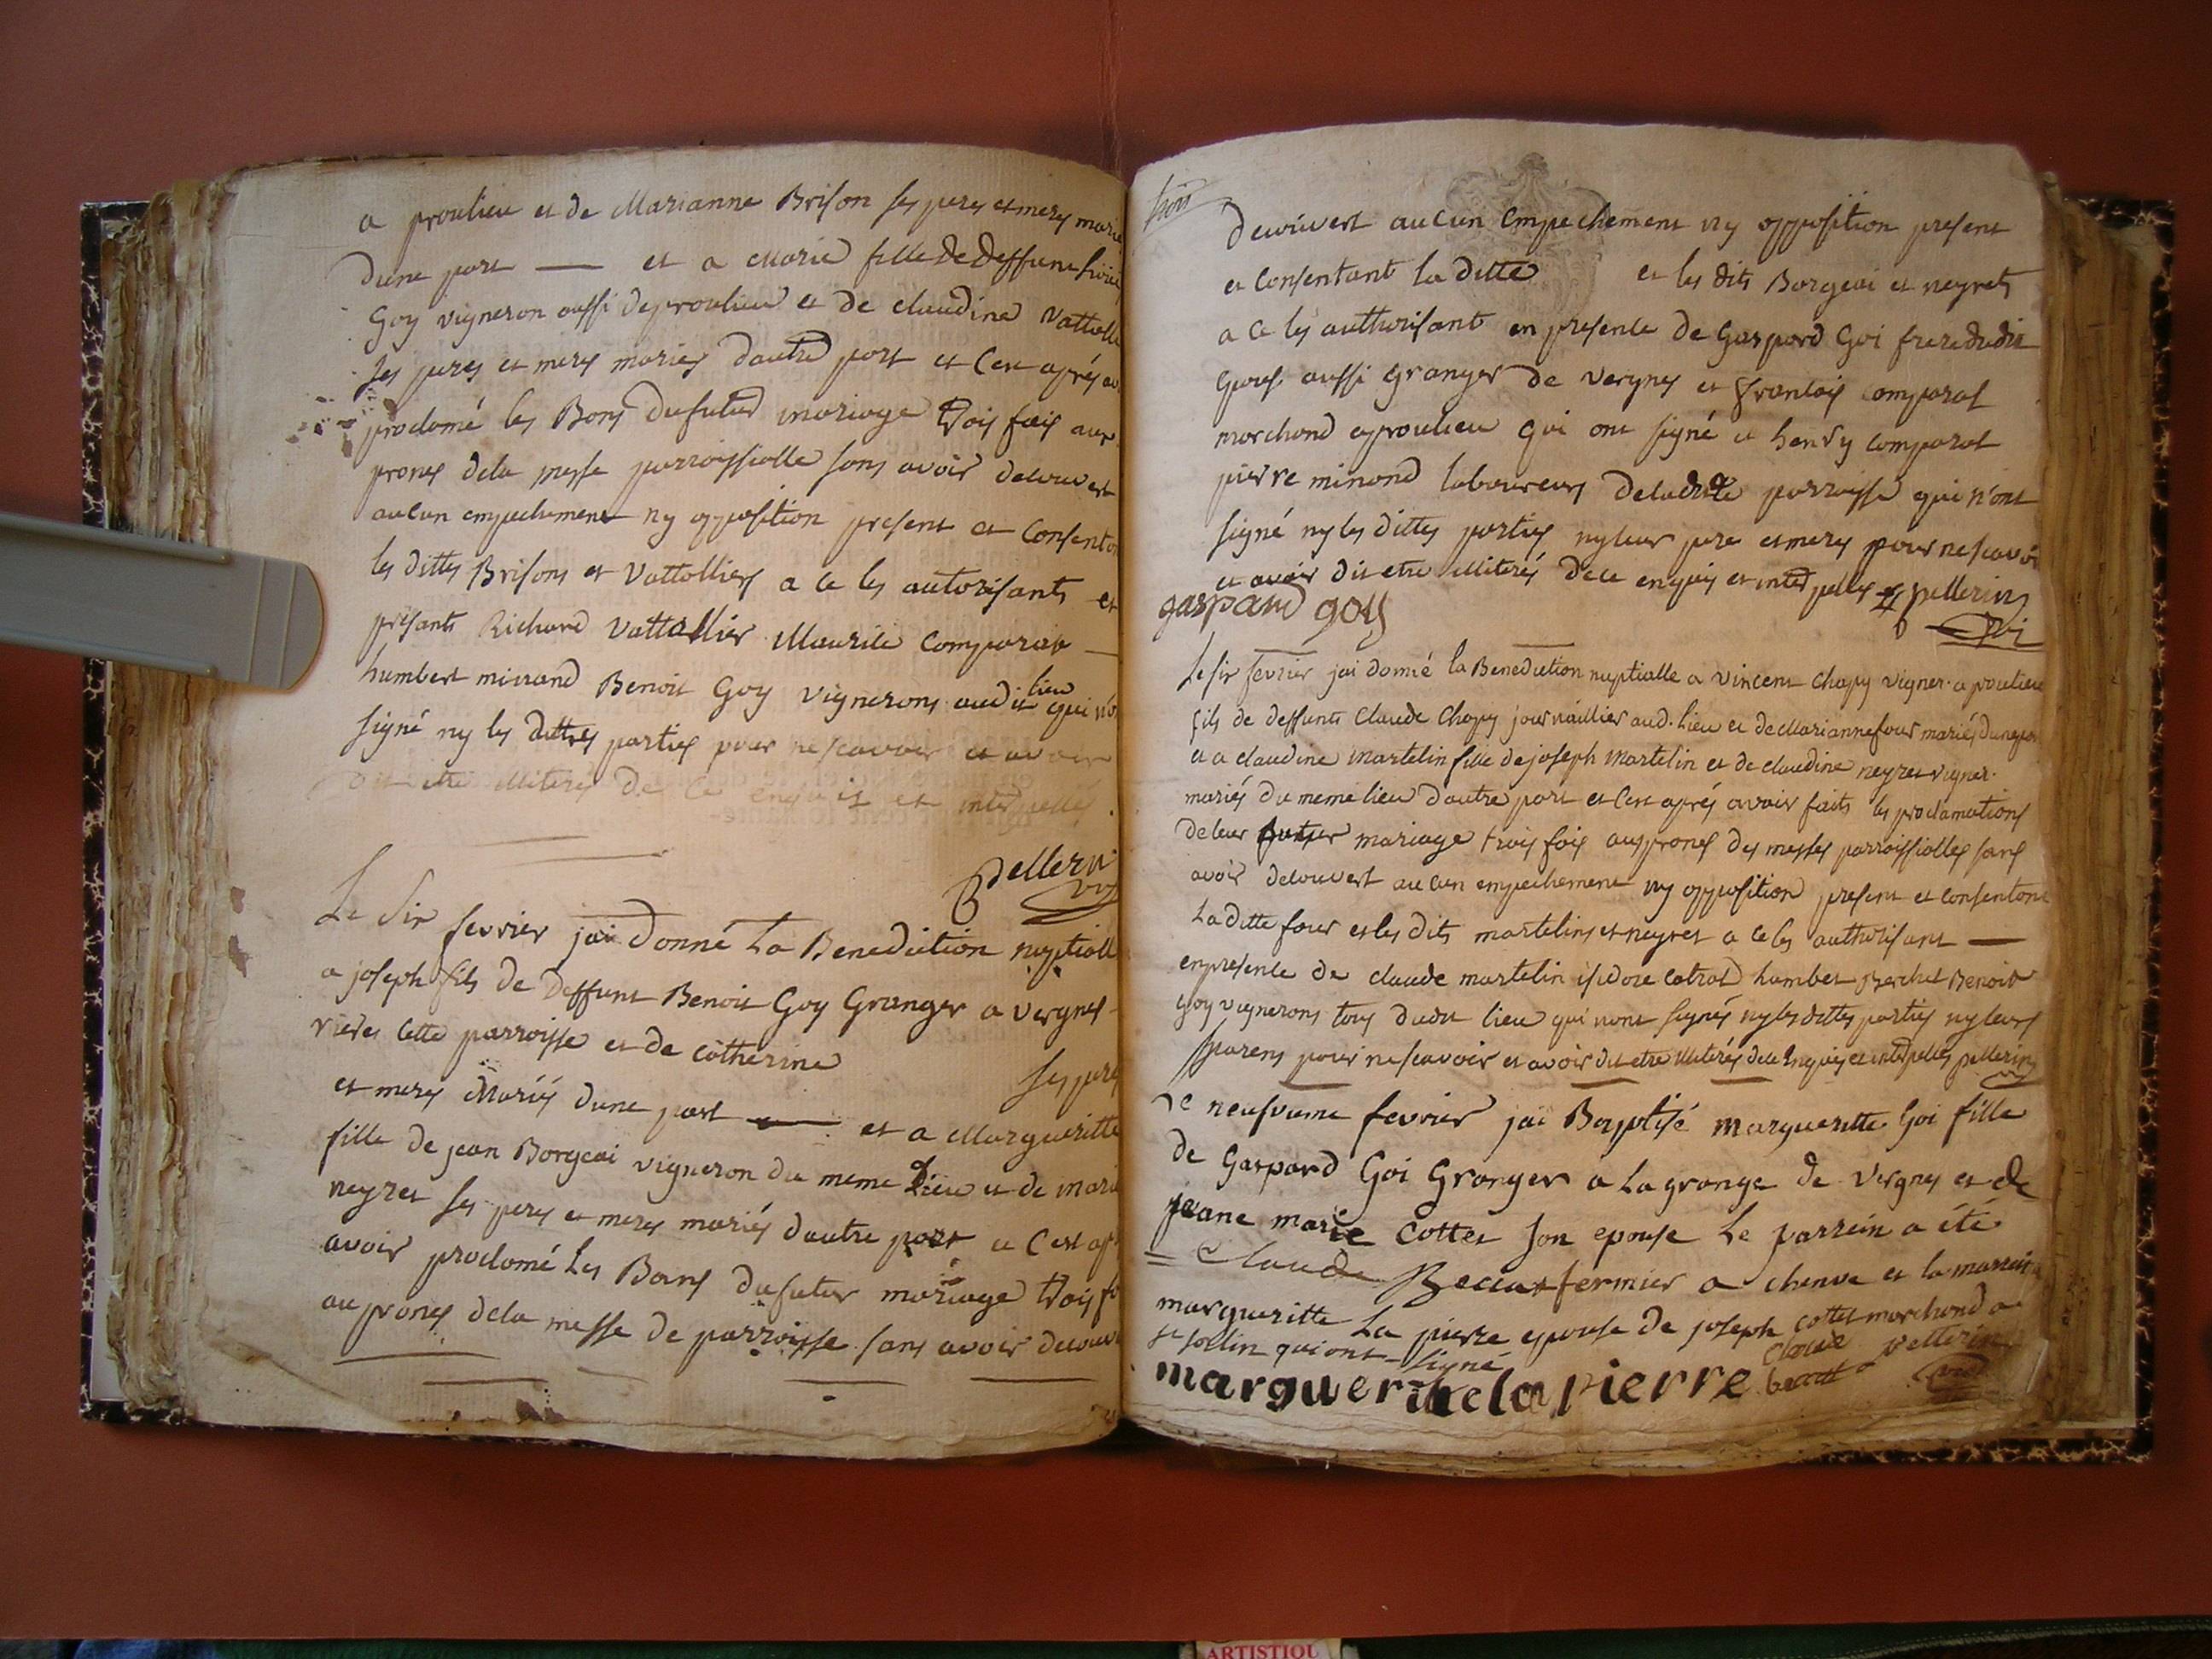 a proulieu et de Marianne Brison ses peres et meres mariés
dune part — et a Marie fille de deffunt
Goy vigneron aussi deproulieu et de claudine Vattolli
ses peres et meres mariés dautre part et Cest aprés av
proclamé les Bans dufutur mariage trois fois aux
prones dela messe parroissialle sans avoir decouvert
aucun empechement ny opposition present et Consentant
les dittes Brisons et Vattolliers a ce les autorisants et
présants Richard Vattollier Maurile Comparat —
humbert minand Benoit Goy vignerons audit lieu qui n'ont
signé ny les dittes parties pour ne scavoir et avoir
dit etre illiterés de ce enquis et interpellés .
Pellerin
Le Six fevrier jai donné La Benediction nuptiall
a joseph fils de Deffunt Benoit Goy Granger a vergnes
rieres cette parroisse et de catherine ses peres
et meres Mariés dune part — et a Margueritte
fille de jean Borgeai vigneron du meme Lieu et de marie
neyret ses peres et meres mariés dautre part et Cest ap
avoir proclamé les Bans dufutur mariage trois fo
au prones dela messe de parroisse sans avoir decouv
decouvert aucun Empechement ny opposition present
et Consentant la ditte et les dits Borgeai et neyrets
a ce les authorisant en presence de Gaspard Goi frere dudit
Epoux aussi Granger de vergnes et Francois Comparat
marchand aproulieu qui ont signé et henry Comparat
pierre minand laboureurs deladitte parroisse qui n'ont
signé ny les dittes parties ny leur pere et meres pour ne scavoir
et avoir dit etre illiterés de ce enquis et interpellés pellerin
gaspard goy
Le six fevrier jai donné la Benediction nuptialle a vincent Chapy vigner. a proulieu
fils de deffunts Claude Chapuy journaillier aud. lieu et de Marianne four mariés dune part
et a claudine martelin fille de joseph martelin et de claudine neyret vigner.
mariés du meme lieu dautre part et Cest aprés avoir faits les proclamations
de leur futur mariage trois fois aux prones des messes parroissialles sans
avoir decouvert aucun empechement ny opposition present et consentant
La ditte four et les dits martelins et neyret a ce les authorisant —
enpresence de claude martelin isidore Cotrat humbert Berchet Benoit
Goy vignerons tous dudit lieu qui nont signés ny les dittes parties ny leurs
parens pour ne scavoir et avoir dit etre illiterés de ce Enquis et interpellés pellerin
Le neufvieme fevrier jai Baptisé margueritte Goi fille
de Gaspard Goi Granger a La grange de vergnes et de
jeane marie Cottet son epouse Le parrein a été
= Claude Beccat fermier a chenve et la marreine
margueritte La pierre epouse de joseph cottet marchand a
st sorlin qui ont signé
margueritte la pierre Claude beccat pellerin